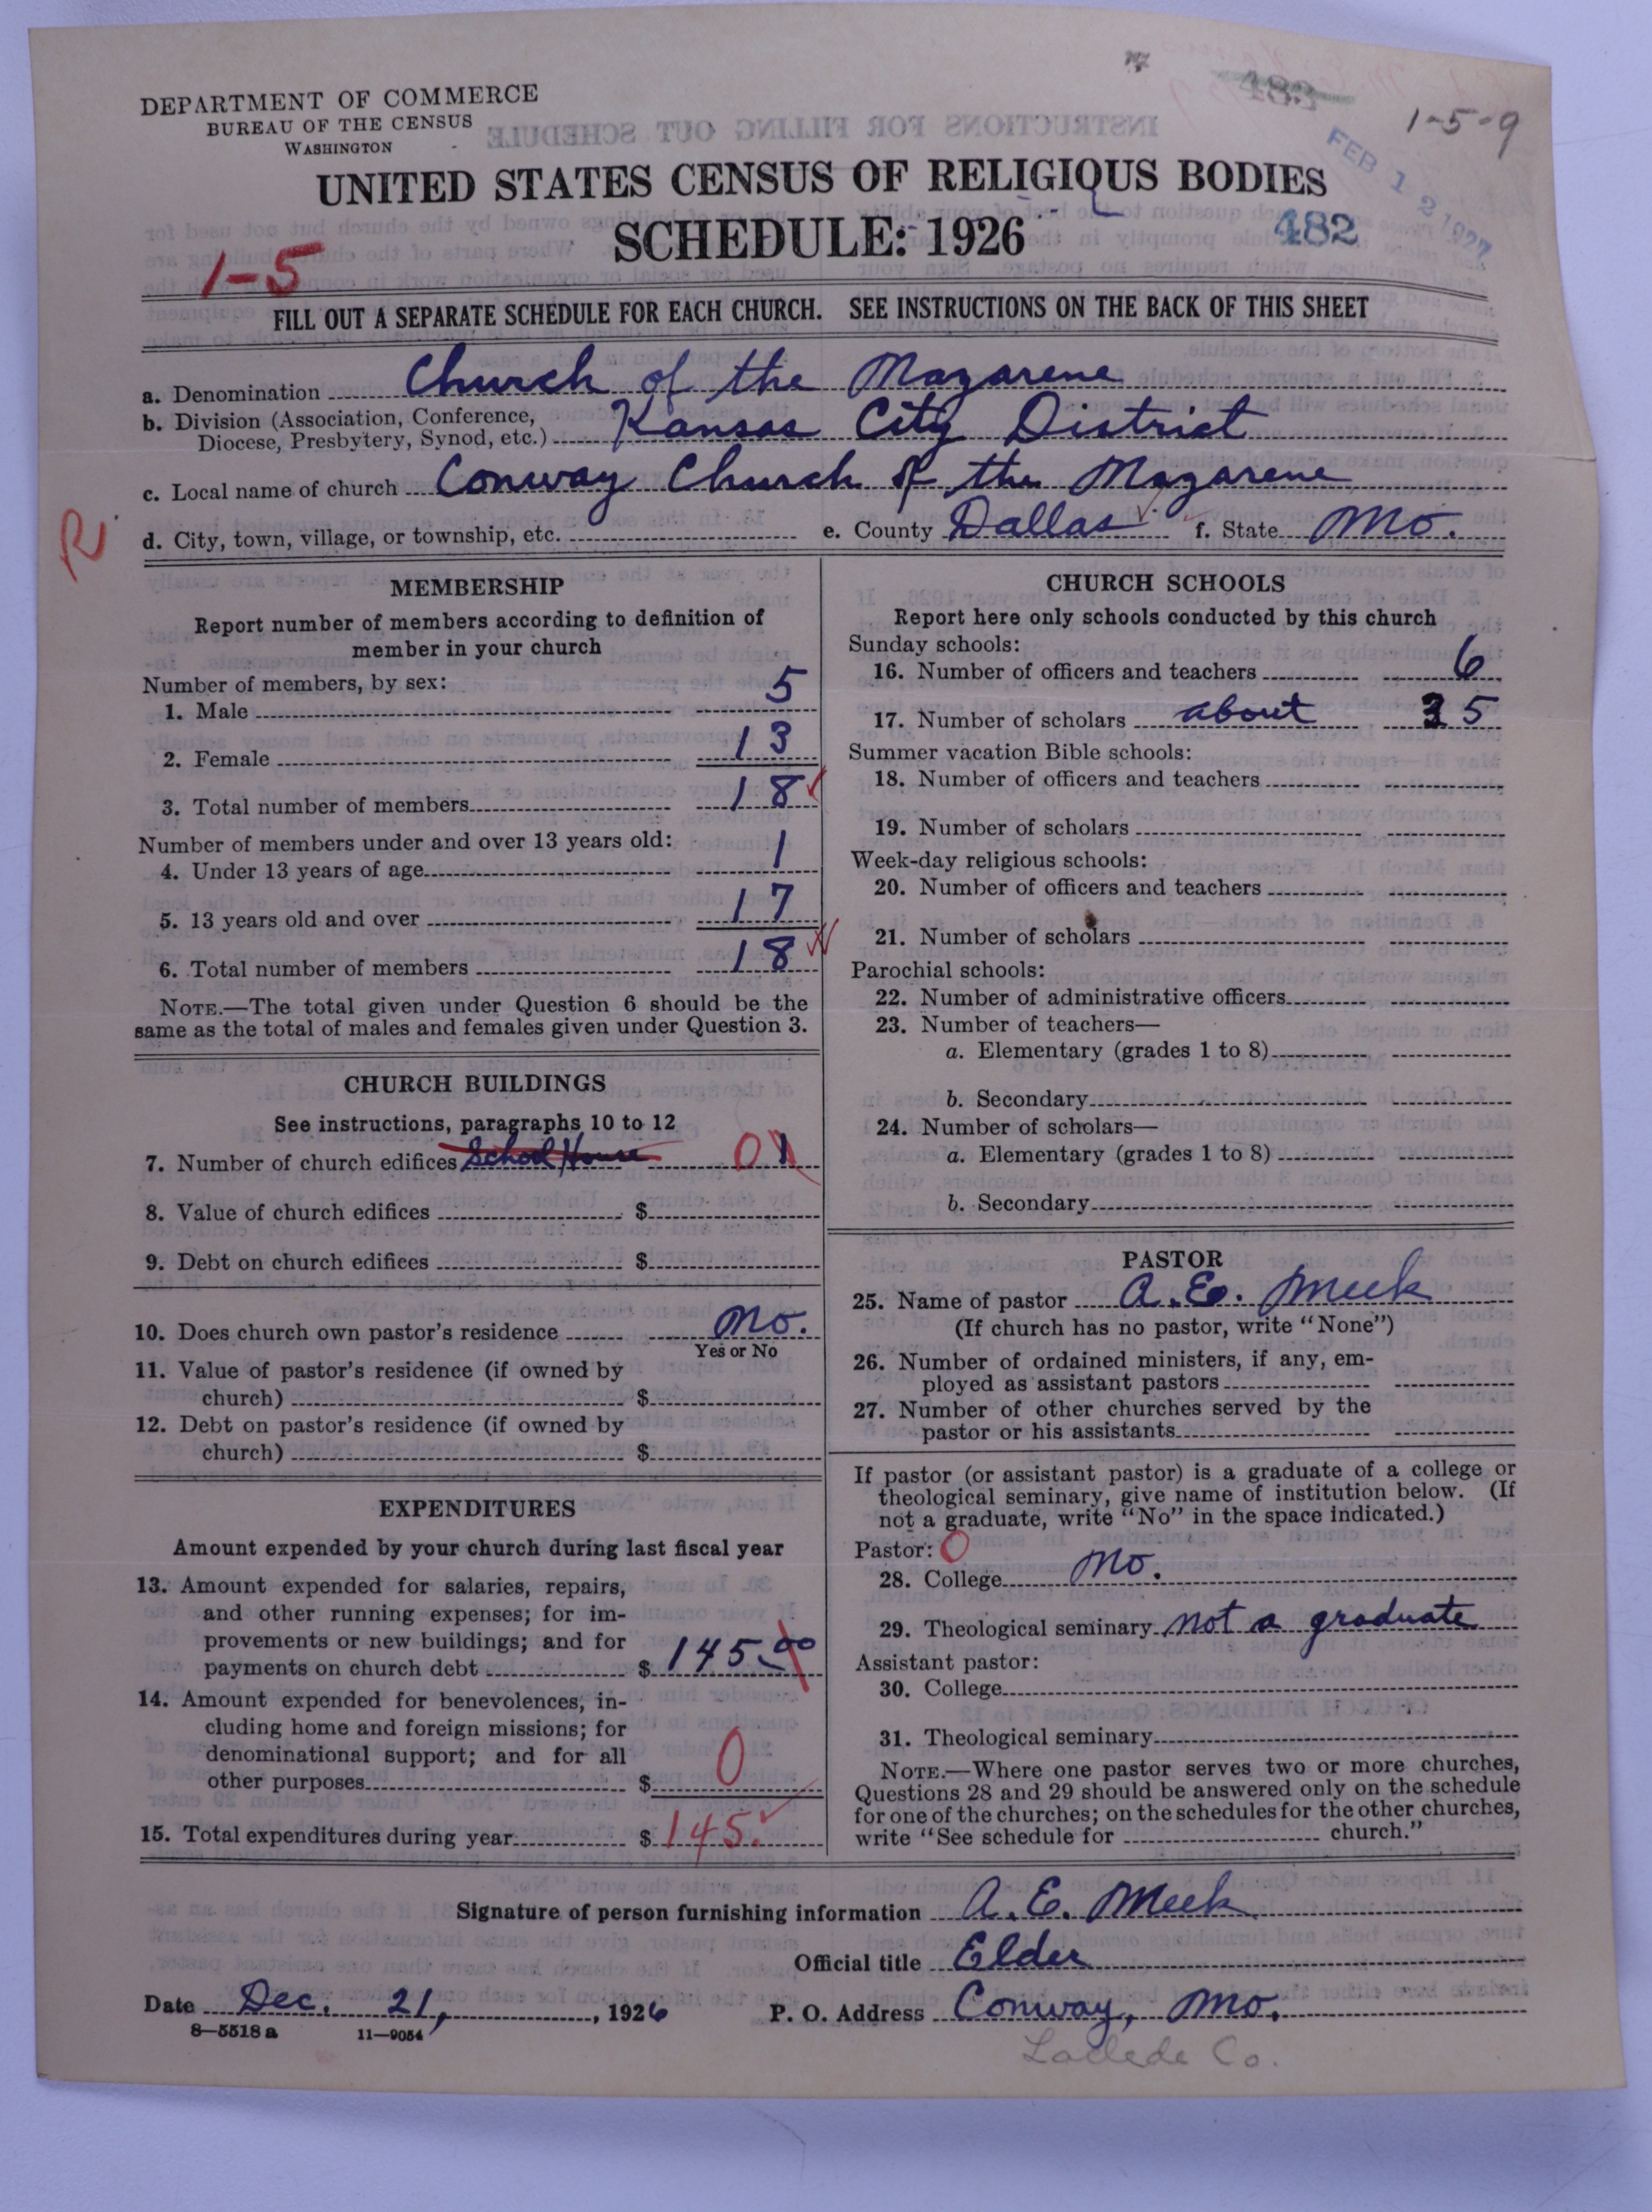 DEPARTMENT OF COMMERCE
BUREAU OF THE CENSUS
WASHINGTON
482
1-5-9
FEB 12 1927
UNITED STATES CENSUS OF RELIGIOUS BODIES
SCHEDULE: 1926
482
1-5
FILL OUT A SEPARATE SCHEDULE FOR EACH CHURCH. SEE INSTRUCTIONS ON THE BACK OF THIS SHEET
a. Denomination Church of the Nazarene
b. Division (Association, Conference,
Diocese, Presbytery, Synod, etc.) Kansas City District
c. Local name of church Conway Church of the Nazarene
R
d. City, town, village, or township, etc. e. County Dallas f. State Mo.
MEMBERSHIP
Report number of members according to definition of
member in your church
Number of members, by sex:
1. Male 5
2. Female 13
3. Total number of members 18
Number of members under and over 13 years old:
4. Under 13 years of age 1
5. 13 years old and over 17
6. Total number of members 18
NOTE.—The total given under Question 6 should be the
same as the total of males and females given under Question 3.
CHURCH BUILDINGS
See instructions, paragraphs 10 to 12
7. Number of church edifices School House 0 1
8. Value of church edifices $
9. Debt on church edifices $
10. Does church own pastor's residence No.
Yes or No
11. Value of pastor's residence (if owned by
church) $
12. Debt on pastor's residence (if owned by
church) $
EXPENDITURES
Amount expended by your church during last fiscal year
13. Amount expended for salaries, repairs,
and other running expenses; for im-
provements or new buildings; and for
payments on church debt $ 145.00
14. Amount expended for benevolences, in-
cluding home and foreign missions; for
denominational support; and for all
other purposes $ 0
15. Total expenditures during year $ 145.
CHURCH SCHOOLS
Report here only schools conducted by this church
Sunday schools:
16. Number of officers and teachers 6
17. Number of scholars about 35
Summer vacation Bible schools:
18. Number of officers and teachers
19. Number of scholars
Week-day religious schools:
20. Number of officers and teachers
21. Number of scholars
Parochial schools:
22. Number of administrative officers
23. Number of teachers—
a. Elementary (grades 1 to 8)
b. Secondary
24. Number of scholars—
a. Elementary (grades 1 to 8)
b. Secondary
PASTOR
25. Name of pastor A. E. Meek
(If church has no pastor, write "None")
26. Number of ordained ministers, if any, em-
ployed as assistant pastors
27. Number of other churches served by the
pastor or his assistants
If pastor (or assistant pastor) is a graduate of a college or
theological seminary, give name of institution below. (If
not a graduate, write "No" in the space indicated.)
Pastor: 0
28. College No.
29. Theological seminary not a graduate
Assistant pastor:
30. College
31. Theological seminary
NOTE.—Where one pastor serves two or more churches,
Questions 28 and 29 should be answered only on the schedule
for one of the churches; on the schedules for the other churches,
write "See schedule for church."
Signature of person furnishing information A. E. Meek
Official title Elder
Date Dec. 21, , 1926 P. O. Address Conway, Mo.
8-5518 a 11-9054
Laclede Co.